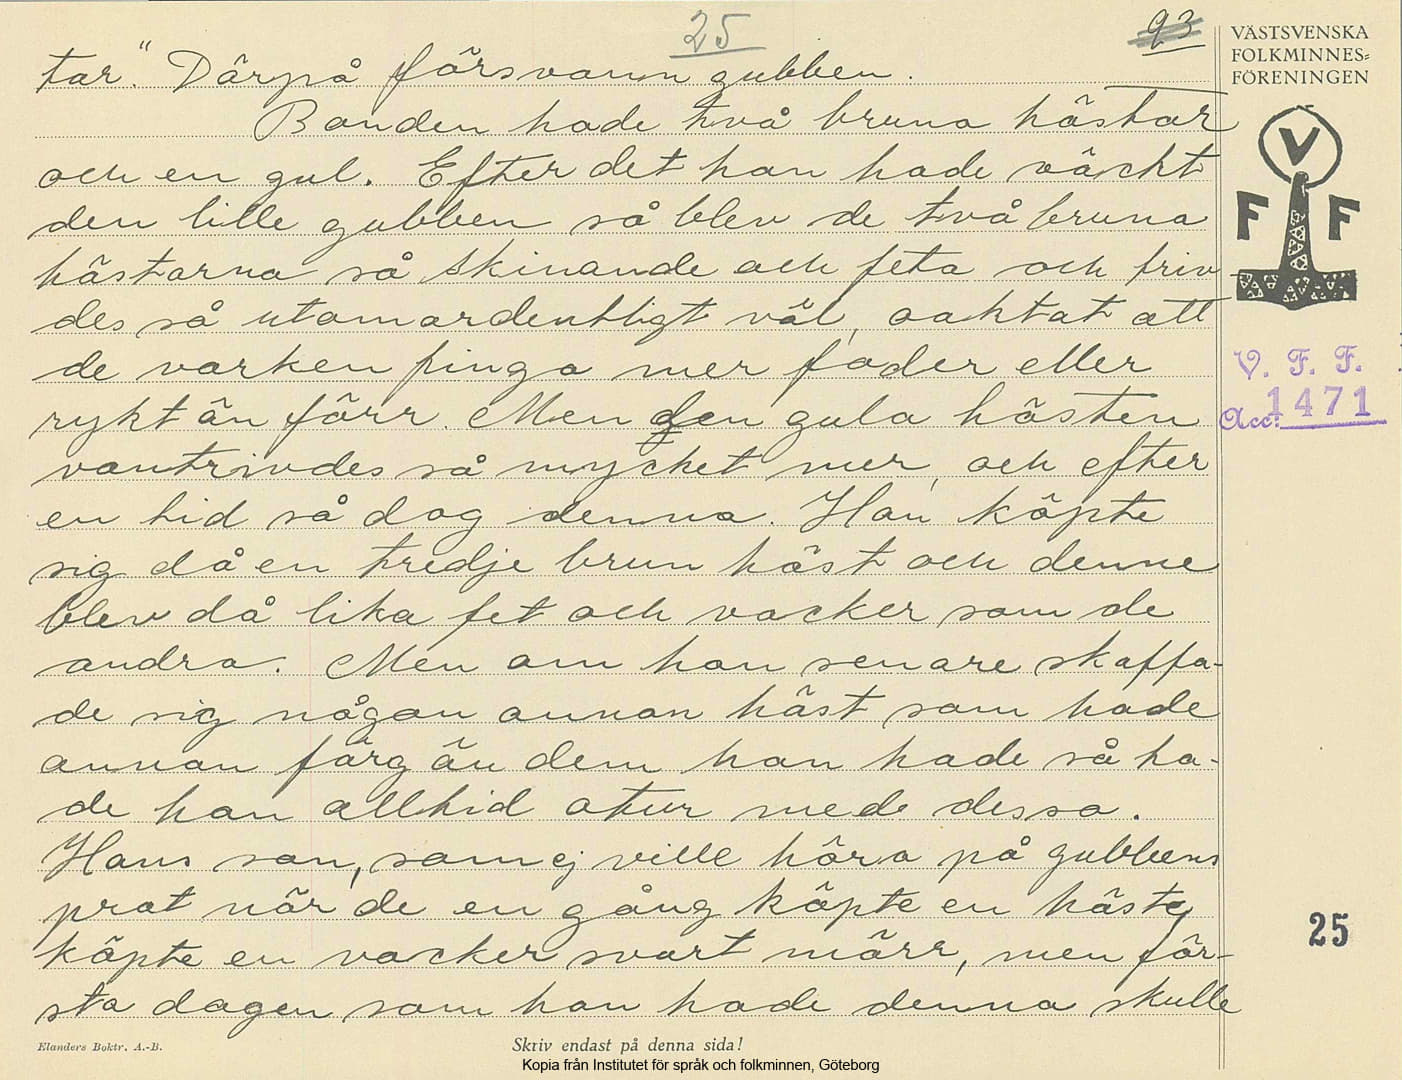 25
93
tar." Därpå försvann gubben.
Bonden hade två bruna hästar
och en gul. Efter det han hade väckt
den lille gubben så blev de två bruna
hästarna så skinande och feta och triv-
des så utomordentligt väl, oaktat att
de varken fingo mer foder eller
rykt än förr. Men den gula hästen
vantrivdes så mycket mer, och efter
en tid så dog denna. Han köpte
sig då en tredje brun häst och denne
blev då lika fet och vacker som de
andra. Men om han senare skaffa-
de sig någon annan häst som hade
annan färg än dem han hade så ha-
de han alltid otur med dessa.
Hans son, som ej ville höra på gubbens
prat när de en gång köpte en häst
köpte en vacker svart märr, men för-
sta dagen som han hade denna skulle
VÄSTSVENSKA
FOLKMINNES=
FÖRENINGEN
V
F F
V. F. F.
Acc: 1471
25
Elanders Boktr. A.-B.
Skriv endast på denna sida!
Kopia från Institutet för språk och folkminnen, Göteborg